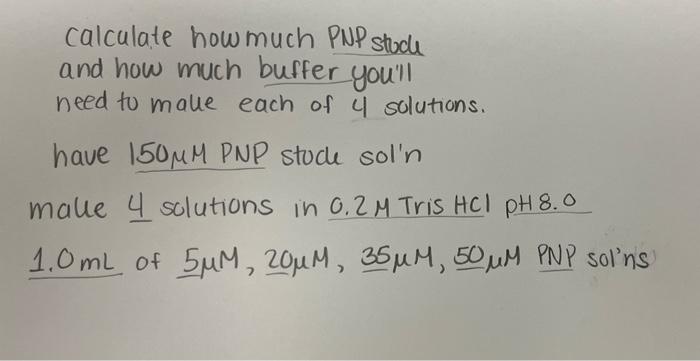 calculate how much PNP stock
and how much buffer you'll
need to make each of 4 solutions.
have 150μM PNP stock sol'n
make 4 solutions in 0.2M Tris HCl pH 8.0
1.0mL of 5μM, 20μM, 35μM, 50μM PNP sol'ns